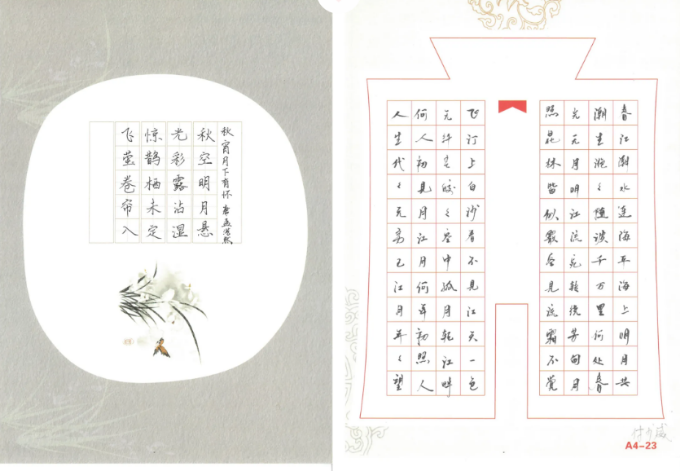 秋宵月下有怀 唐 孟浩然
秋空明月悬
光彩露沾湿
惊鹊栖未定
飞萤卷帘入
春江潮水连海平海上明月共
潮生滟々随波千万里何处春
光无月明江流宛转绕芳甸月
照花林皆似霰空里流霜不觉
飞汀上白沙看不见江天一色
无纤尘皎々空中孤月轮江畔
何人初见月江月何年初照人
人生代々无穷已江月年々望
A4-23